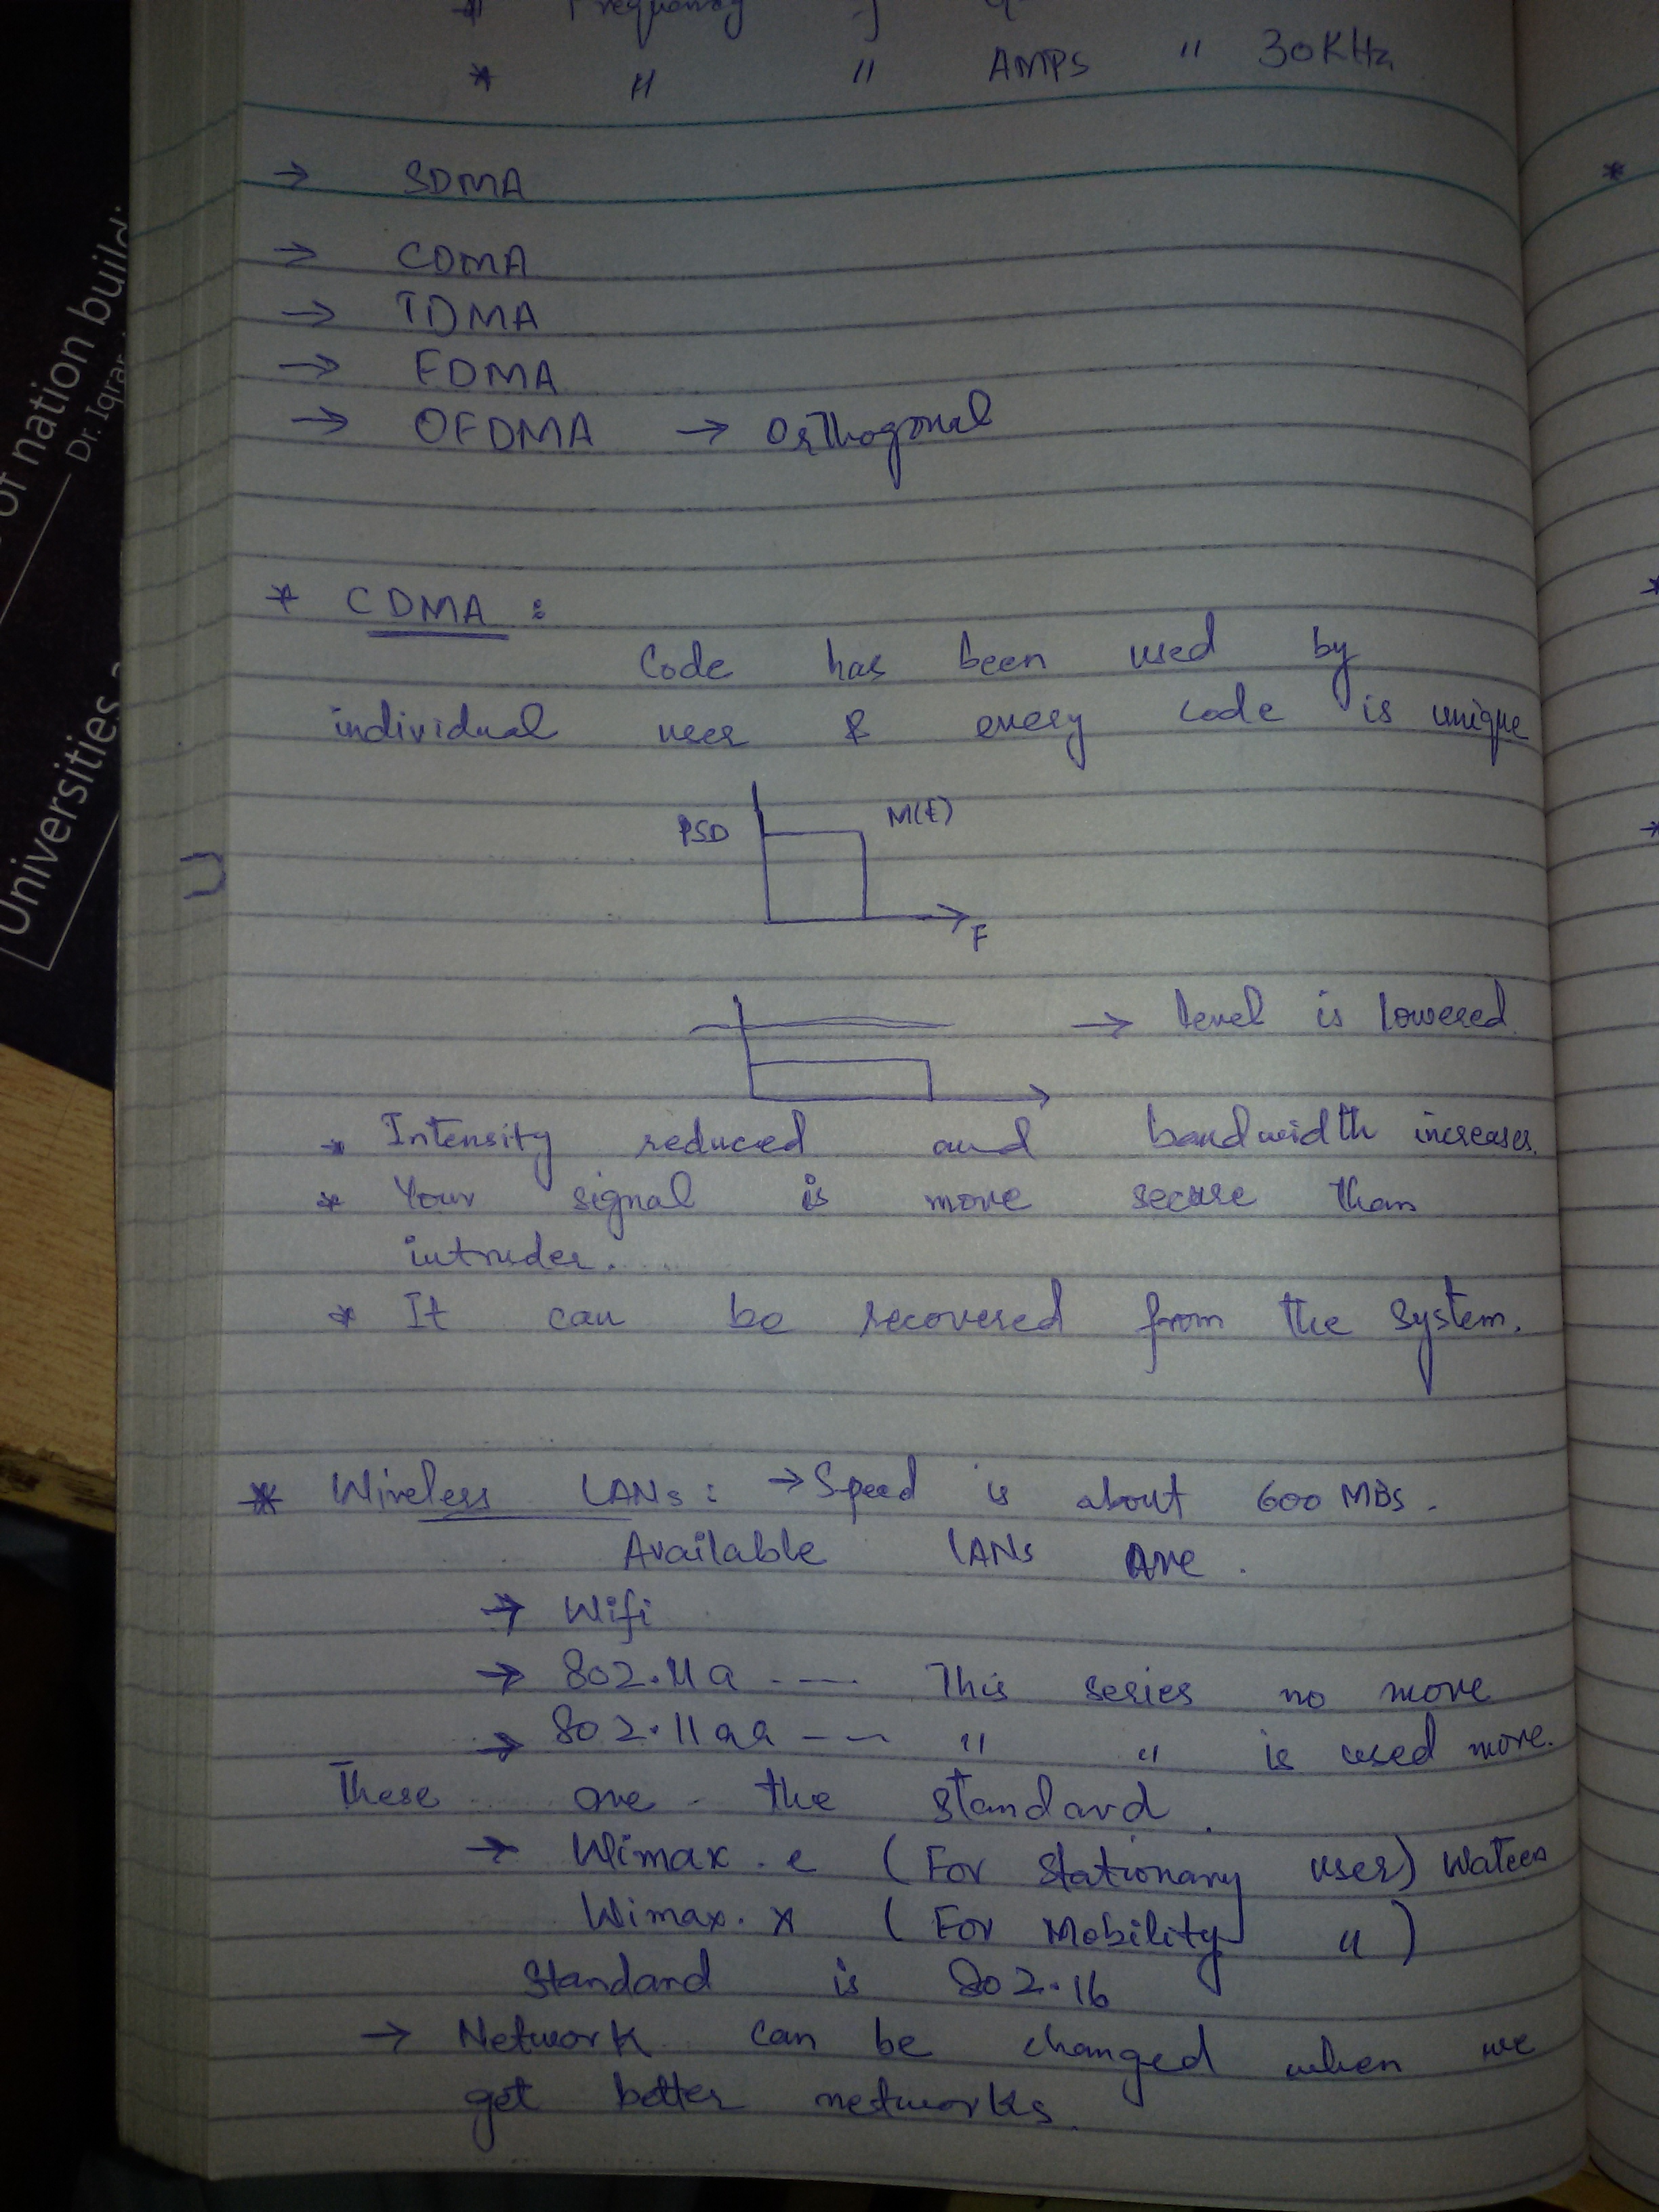 * Frequency
* " " AMPS " 30KHz
→ SDMA
→ CDMA
→ TDMA
→ FDMA
→ OFDMA → Orthogonal
* CDMA :
Code has been used by
individual user & every code is unique
PSD M(t)
F
→ level is lowered
* Intensity reduced and bandwidth increases.
* Your signal is more secure than
intruder.
* It can be recovered from the system.
* Wireless LANs : → Speed is about 600 MBs.
Available LANs Are.
→ Wifi
→ 802.11a ---- This series no more
→ 802.11aa --- " " is used more.
These are the standard.
→ Wimax.e (For stationary user) Wateen
Wimax.x (For Mobility ")
Standard is 802.16
→ Network can be changed when we
get better networks.
of nation build
Dr. Iqrar
Universities